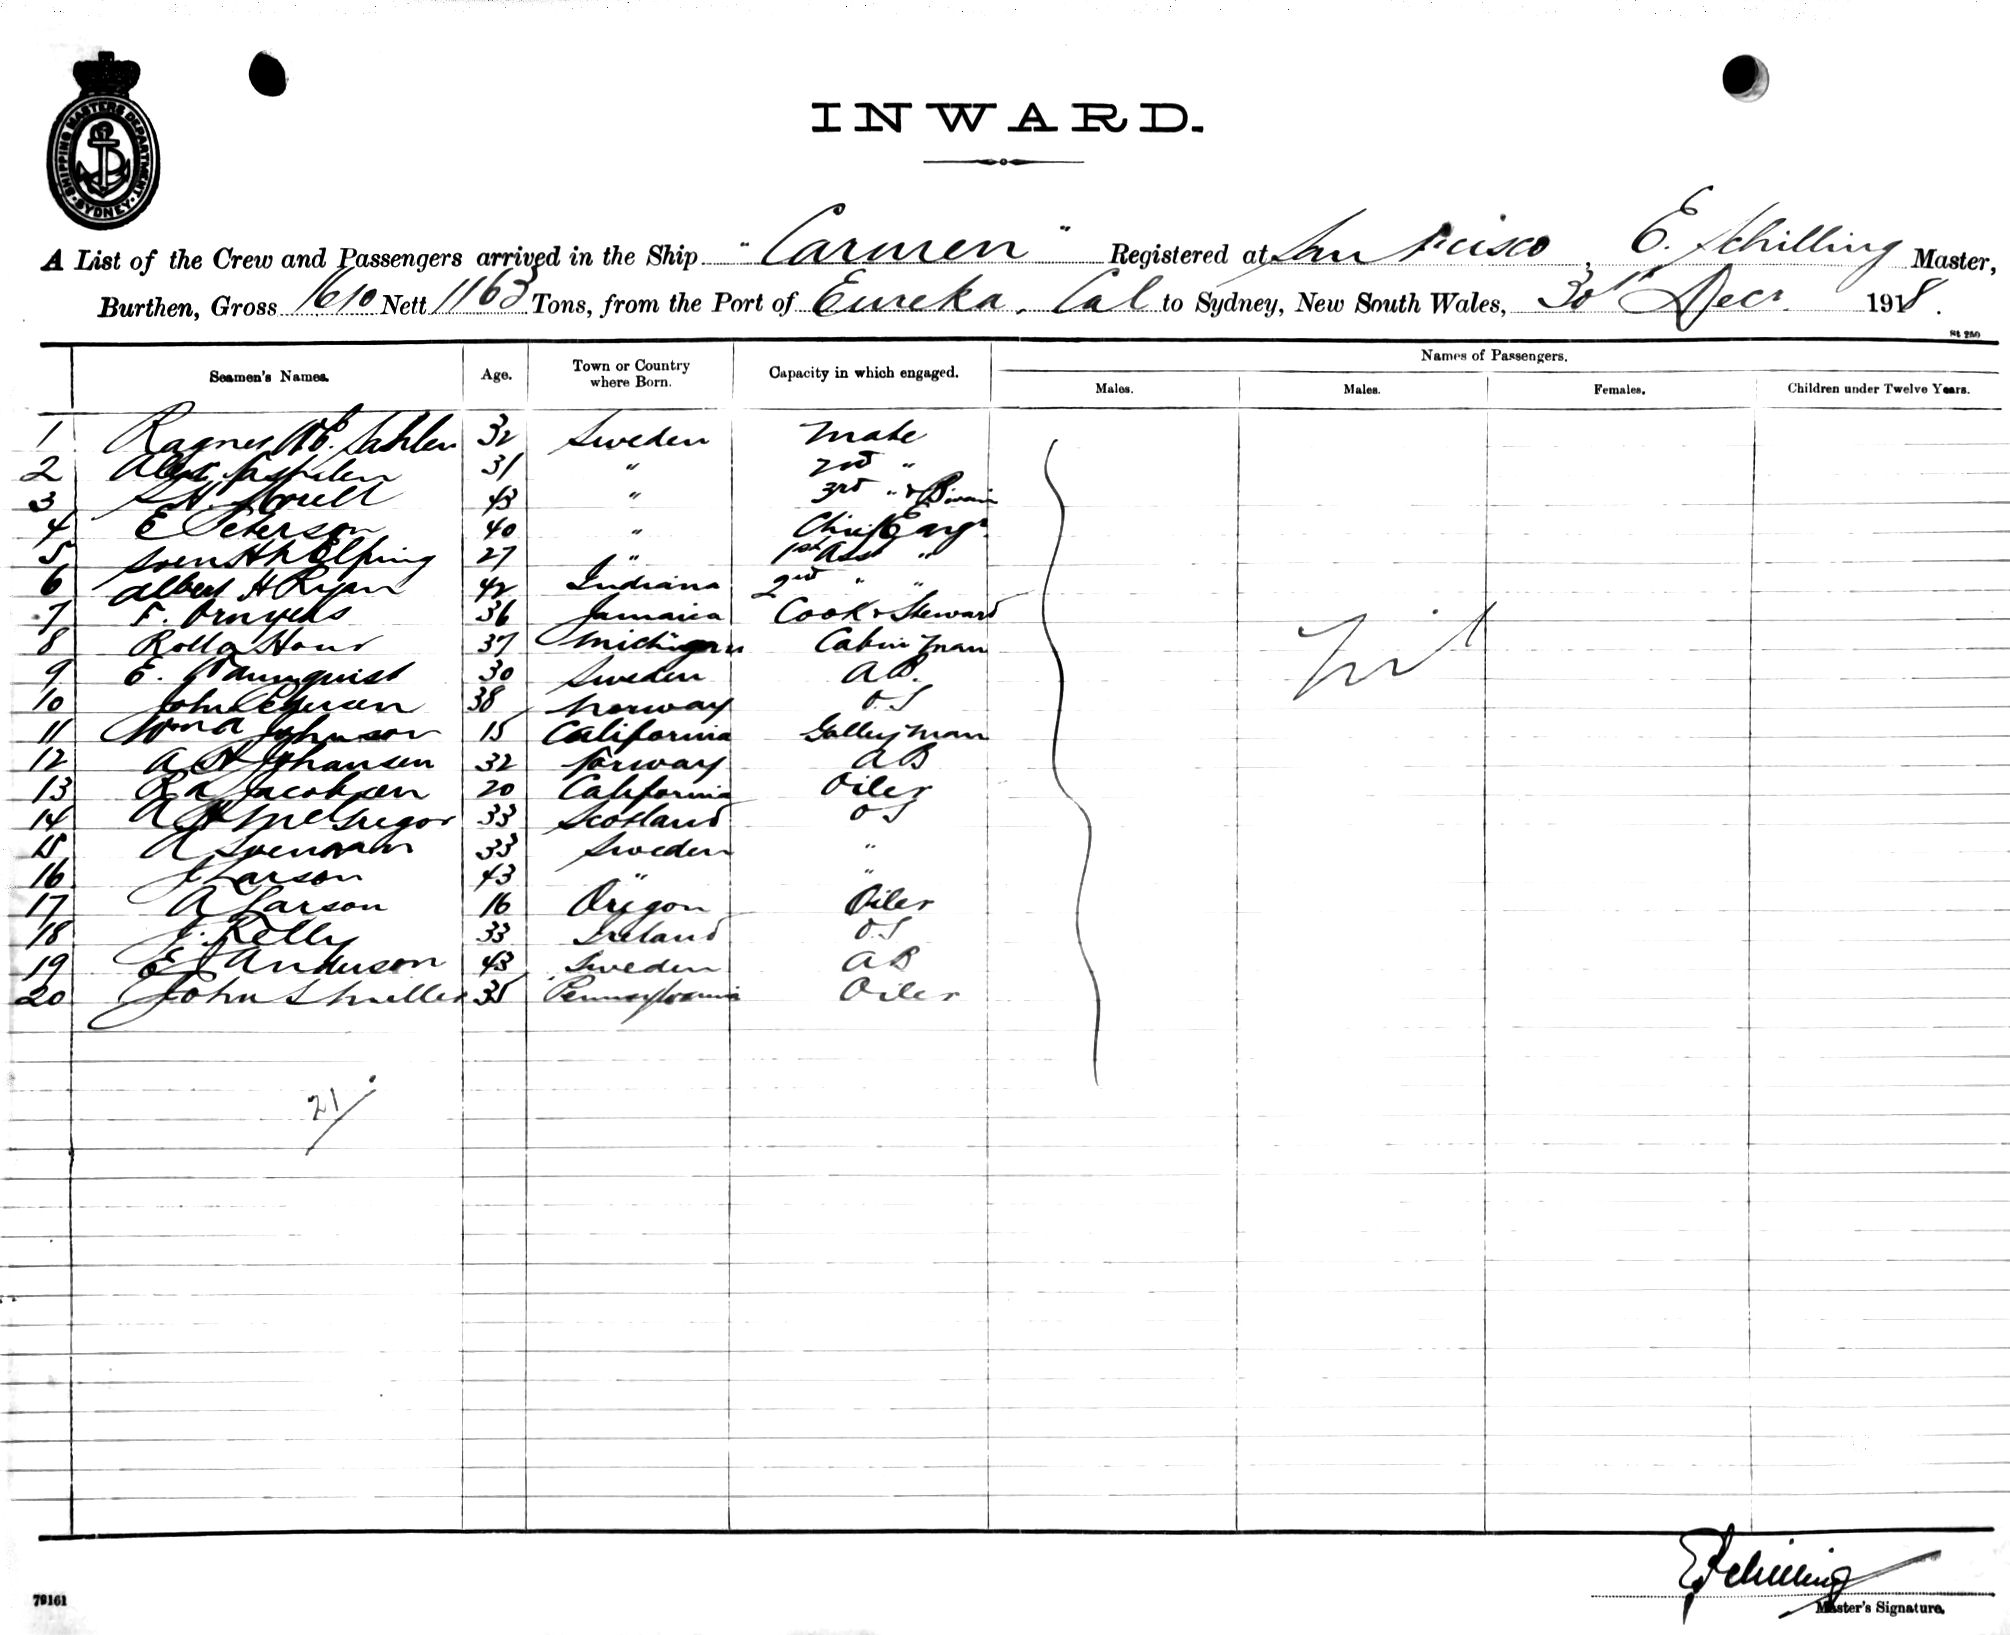 SHIPPING MASTERS DEPARTMENT
SYDNEY
INWARD.
A List of the Crew and Passengers arrived in the Ship "Carmen" Registered at San Fcisco, E. Schilling Master,
Burthen, Gross 1610 Nett 1163 Tons, from the Port of Eureka. Cal to Sydney, New South Wales, 30th Decr. 1918.
Seamen's Names. Age. Town or Country where Born. Capacity in which engaged. Names of Passengers.
Males. Males. Females. Children under Twelve Years.
1 32 Sweden Mate
2 31 " 2nd "
3 43 " 3rd "
4 E Peterson 40 " Chief Engr.
5 Sven 27 " 1st Asst "
6 Albert H Ryan 42 Indiana 2nd " "
7 F. 36 Jamaica Cook & Steward
8 Rolla 37 Michigan Cabin Man
9 E. 30 Sweden A.B.
10 John 38 Norway O.S
11 Johnson 15 California Galley Man
12 A Johansen 32 Norway A B
13 Jacobsen 20 California Oiler
14 A McGregor 33 Scotland O S
15 A Svensson 33 Sweden "
16 J Larson 43 " "
17 A Larson 16 Oregon Oiler
18 J. Kelly 33 Ireland O.S
19 E J Anderson 43 Sweden A B
20 John 35 Pennsylvania Oiler
Nil
21/
E Schilling
Master's Signature.
79161